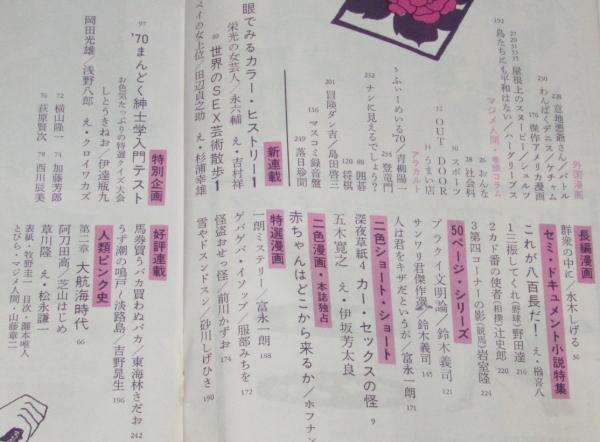 長編漫画
群衆の中に/水木しげる 56
セミ・ドキュメント小説特集
これが八百長だ! え・楢喜八
1 三振してくれ(野球)野田達 216
2 カド番の使者(相撲)辻史郎 220
3 第四コーナーの影(競馬)岩室隆 224
50ページ・シリーズ
ブラクイ文明論 鈴木義司 121
サンワリ君傑作選 鈴木義司 145
人は君をキザだというが/富永一朗 171
二色ショート・ショート
深夜草紙4 カー・セックスの怪 9
五木寛之 え・伊坂芳太良
二色漫画・本誌独占
赤ちゃんはどこから来るか/ホフナン
特選漫画
一朗ミステリー/富永一朗 188
ゲバゲバ・イソップ/服部みちを 172
怪盗おせっ怪/前川かずお 174
雪やドスンドスン/砂川しげひさ 190
外国漫画
意地悪爺さん/バトル 228
わんぱくデニス/ケチャム 230
傑作アメリカ漫画 176
屋根上のスヌーピー/シュルツ
27 29 31 33 35
鳥たちにも平和はない/ハーグリーブス 192
マジメ人間・巻頭コラム
おんな 26
社会科 28
スポーツ 30
OUT DOOR 32
うまい店 34
アラカルト
ふぃーめいる70/青柳陽一 5
登竜門 254
ナンに見えるでしょう? 252
囲碁 88
将棋 120
冒険ダン吉/島田啓三 201
マスコミ録音盤 156
落日珍聞 249
新連載
眼でみるカラー・ヒストリー1
栄光の女芸人/永六輔 え・吉村祥
世界のSEX芸術散歩1
スイの女上位/田辺貞之助 え・杉浦幸雄
特別企画
'70まんどく紳士学入門テスト 97
お色気たっぷりの特選クイズ大会
しとうきねお/伊達瓶九
岡田光雄/浅野八郎 え・クロイワカズ
横山隆一 72
加藤芳郎 74
荻原賢次 76
西川辰美 78
好評連載
馬券買うバカ買わぬバカ/東海林さだお 242
うず潮の鳴戸〜淡路島/吉野晃生 196
人類ピンク史
第二章 大航海時代 66
阿刀田高/芝山はじめ
草川隆 え・松永謙一
表紙・牧野圭一 目次・灘本唯人
とびら・マジメ人間・山藤章二